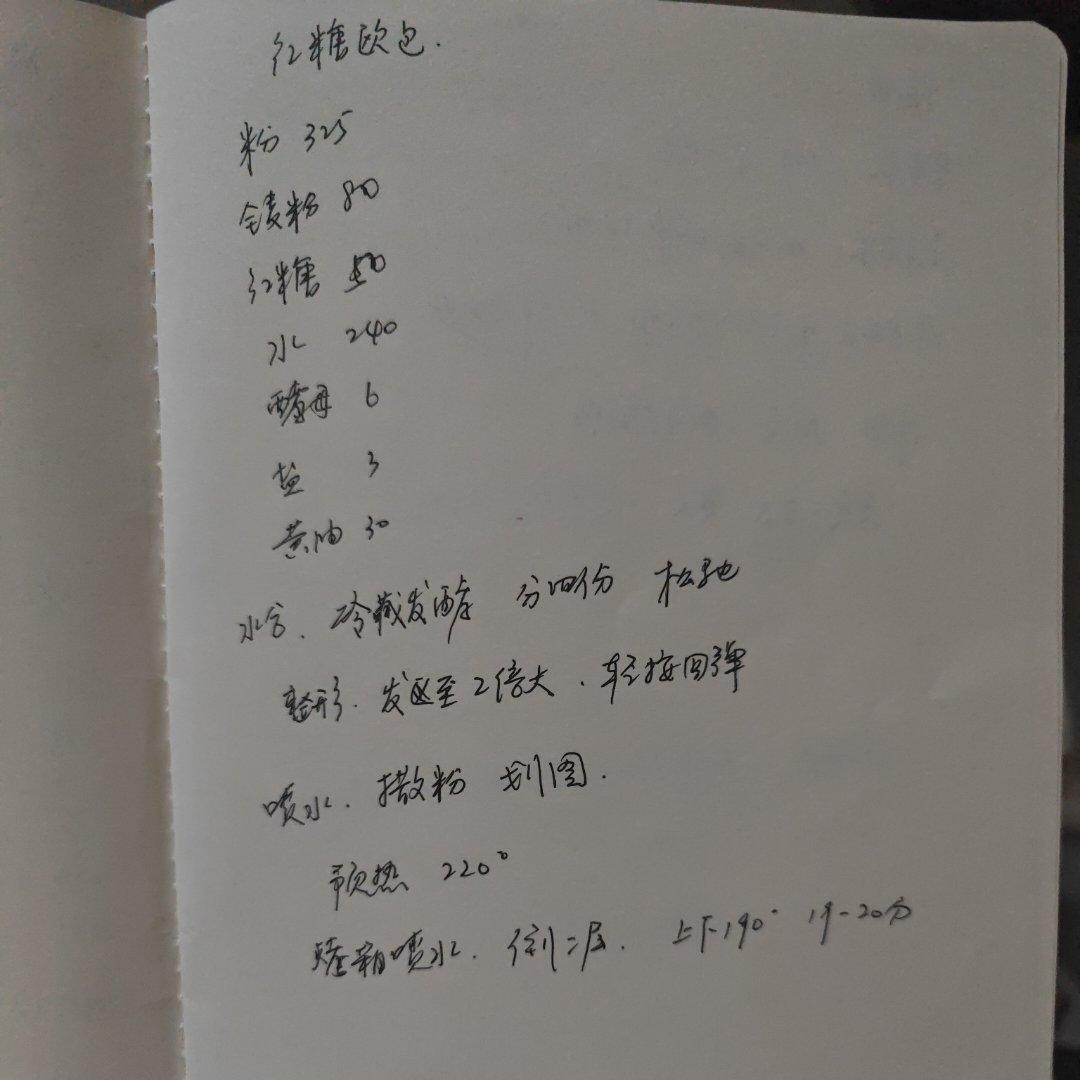 红糖欧包.
粉 325
全麦粉 80
红糖 50
水 240
酵母 6
盐 3
黄油 30
水合、冷藏发酵 分四份 松弛
整形. 发酵至2倍大. 轻按回弹
喷水. 撒粉 划图.
预热 220°
烤箱喷水. 倒二层. 上下190° 19-20分